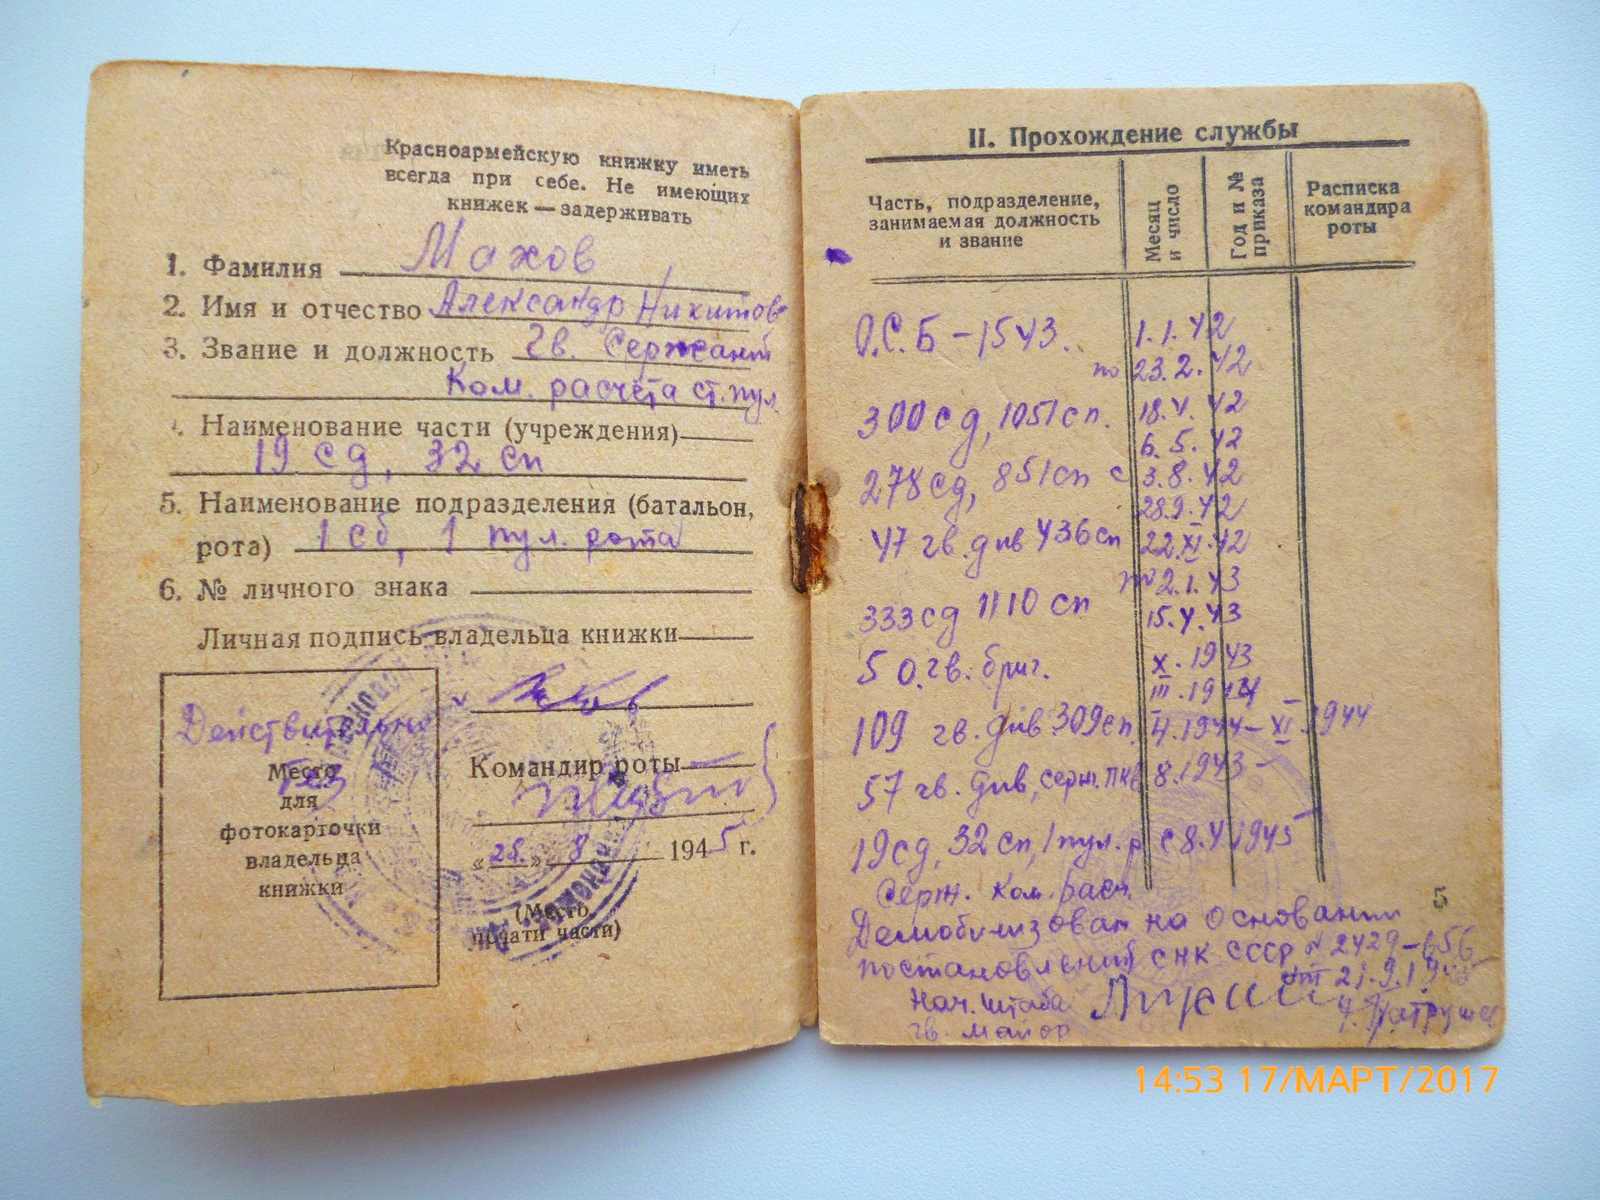 Красноармейскую книжку иметь
всегда при себе. Не имеющих
книжек — задерживать
1. Фамилия Махов
2. Имя и отчество Александр Никитов
3. Звание и должность Гв. Сержант
Ком. расчёта ст. пул.
4. Наименование части (учреждения)
19 сд, 32 сп
5. Наименование подразделения (батальон,
рота) 1 сб, 1 пул. рота
6. № личного знака
Личная подпись владельца книжки
Действительно
без
Место
для
фотокарточки
владельца
книжки
Командир роты
«25.» 8 1945 г.
(Место
печати части)
II. Прохождение службы
Часть, подразделение,
занимаемая должность
и звание
Месяц
и число
Год и №
приказа
Расписка
командира
роты
О.С.Б – 1543. 1.1.42
по 23.2.42
300 сд, 1051 сп. 18.4.42
6.5.42
278 сд, 851 сп с 3.8.42
28.9.42
47 гв. див 436 сп 22.XI.42
по 2.1.43
333 сд 1110 сп 15.4.43
5 О. гв. бриг. X.1943
III.1944
109 гв. див 309 сп. 4.1944 – XI.1944
57 гв. див, серж. 8.1943
19 сд, 32 сп, 1 пул. р с 8.4.1945
Серж. Ком. расч.
5
Демобилизован на основании
постановления СНК СССР № 2429-656
от 21.9.1945
Нач. штаба
гв. майор
14:53 17/МАРТ/2017